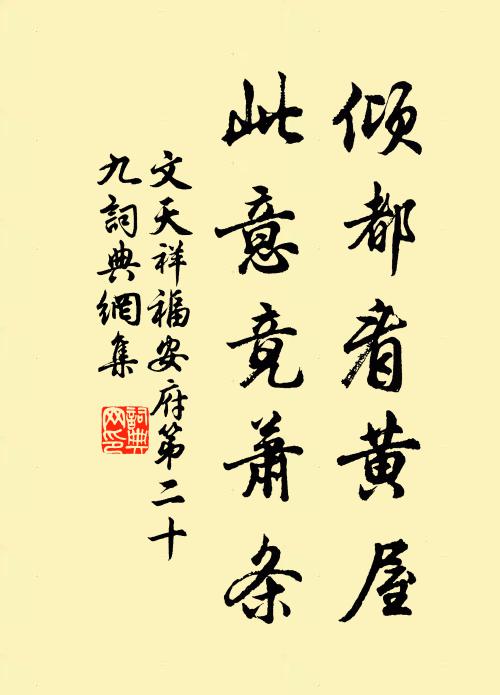 倾都看黄屋
此意竟蕭条
文天祥福安府第二十
九詞典網集
詞典网印